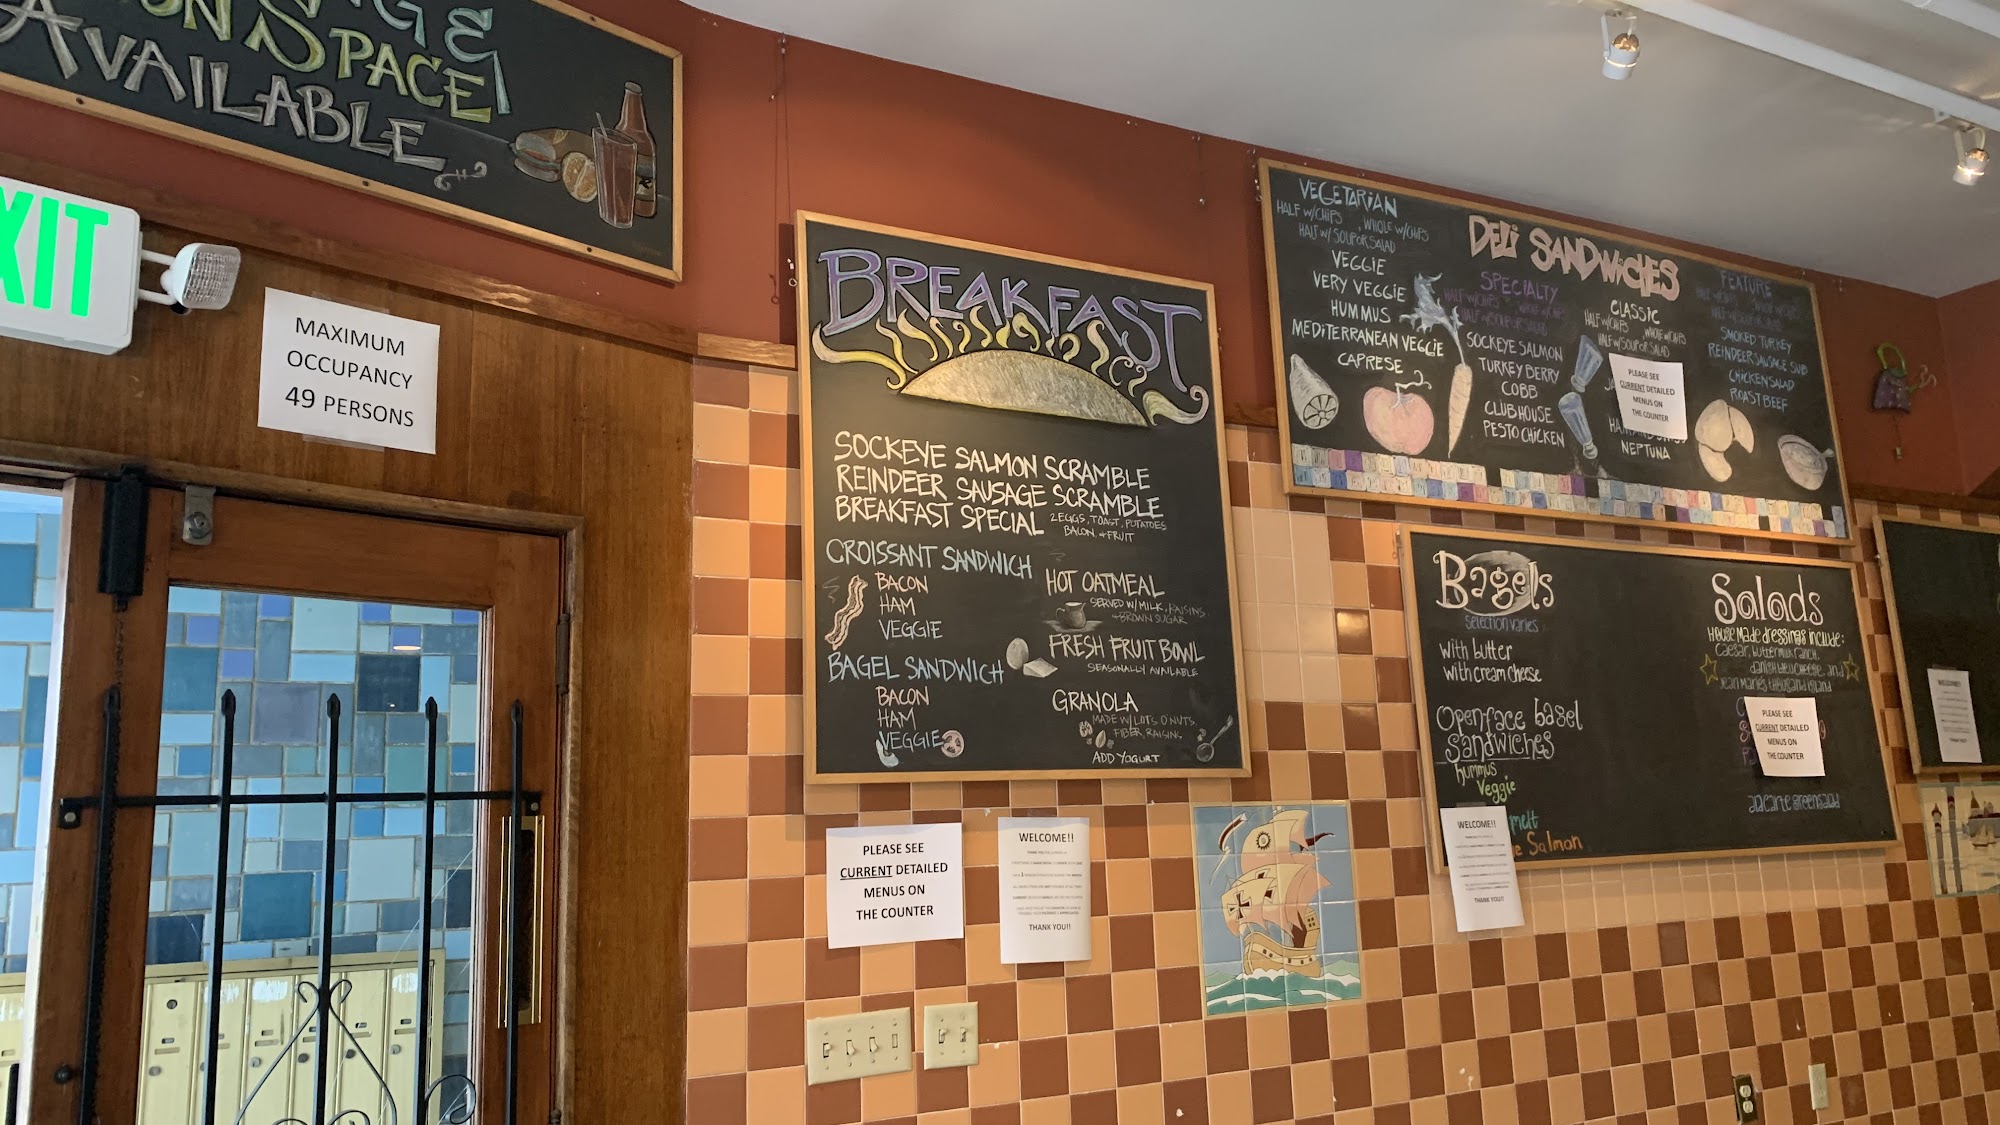 ON SPACE
AVAILABLE
XIT
MAXIMUM
OCCUPANCY
49 PERSONS
BREAKFAST
SOCKEYE SALMON SCRAMBLE
REINDEER SAUSAGE SCRAMBLE
BREAKFAST SPECIAL 2 EGGS, TOAST, POTATOES
BACON + FRUIT
CROISSANT SANDWICH
BACON
HAM
VEGGIE
BAGEL SANDWICH
BACON
HAM
VEGGIE
HOT OATMEAL
SERVED W/MILK, RAISINS
+ BROWN SUGAR
FRESH FRUIT BOWL
SEASONALLY AVAILABLE
GRANOLA
MADE W/LOTS O NUTS,
FIBER, RAISINS
ADD YOGURT
PLEASE SEE
CURRENT DETAILED
MENUS ON
THE COUNTER
WELCOME!!
THANK YOU!!
DELI SANDWICHES
VEGETARIAN
HALF W/CHIPS , WHOLE W/CHIPS
HALF W/ SOUP OR SALAD
VEGGIE
VERY VEGGIE
HUMMUS
MEDITERRANEAN VEGGIE
CAPRESE
SPECIALTY
HALF W/CHIPS WHOLE W/CHIPS
HALF W/SOUP OR SALAD
SOCKEYE SALMON
TURKEY BERRY
COBB
CLUBHOUSE
PESTO CHICKEN
CLASSIC
HALF W/CHIPS WHOLE W/CHIPS
HALF W/ SOUP OR SALAD
PLEASE SEE
CURRENT DETAILED
MENUS ON
THE COUNTER
NEPTUNA
FEATURE
HALF W/CHIPS WHOLE W/CHIPS
HALF W/SOUP OR SALAD
SMOKED TURKEY
REINDEER SAUSAGE SUB
CHICKEN SALAD
ROAST BEEF
Bagels
selection varies
with butter
with cream cheese
Openface bagel
sandwiches
hummus
Veggie
melt
Salmon
WELCOME!!
THANK YOU!!
Salads
House made dressings include:
Caesar, buttermilk ranch,
danish bleu cheese, and
Jean Marie's thousand island
PLEASE SEE
CURRENT DETAILED
MENUS ON
THE COUNTER
ala carte green salad
WELCOME!!